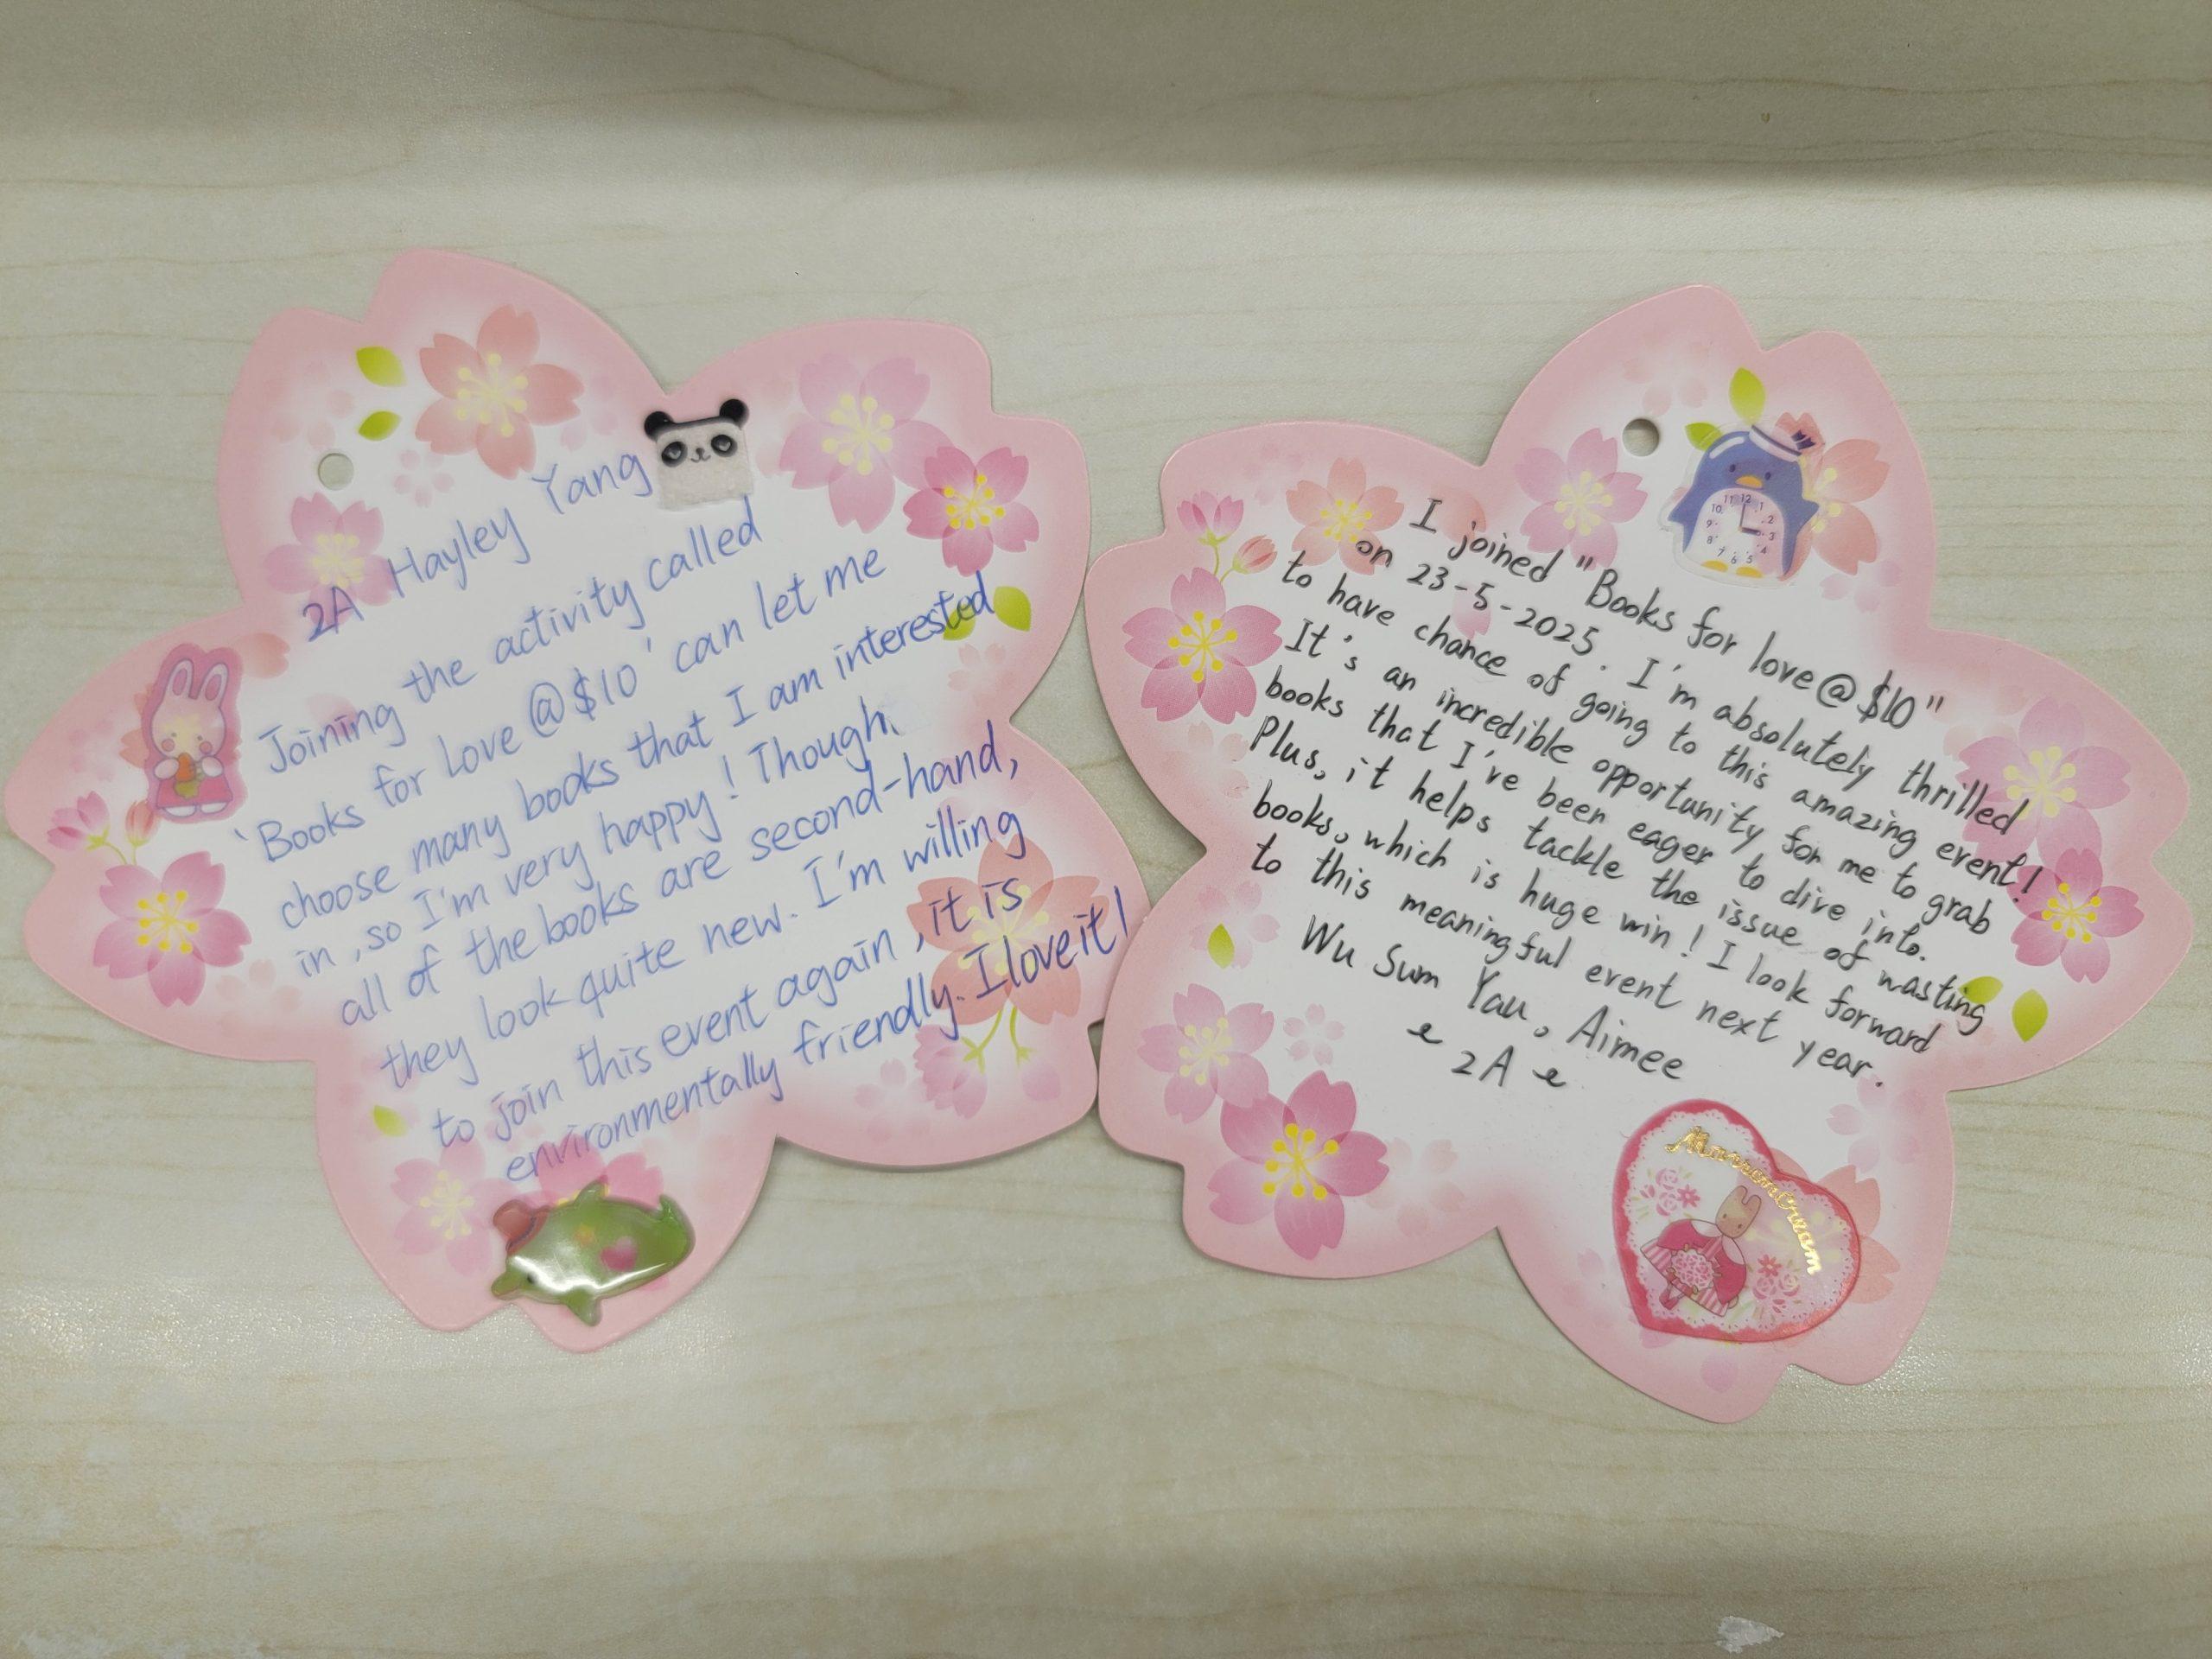 2A Hayley Yang
Joining the activity called
'Books for love @$10' can let me
choose many books that I am interested
in, so I'm very happy! Though,
all of the books are second-hand,
they look quite new. I'm willing
to join this event again, it is
environmentally friendly. I love it!
I joined "Books for love@$10"
on 23-5-2025. I'm absolutely thrilled
to have chance of going to this amazing event!
It's an incredible opportunity for me to grab
books that I've been eager to dive into.
Plus, it helps tackle the issue of wasting
books, which is huge win! I look forward
to this meaningful event next year.
Wu Sum Yau, Aimee
2A
11 12 1
10 2
9 3
8 4
7 6 5
MarronCream